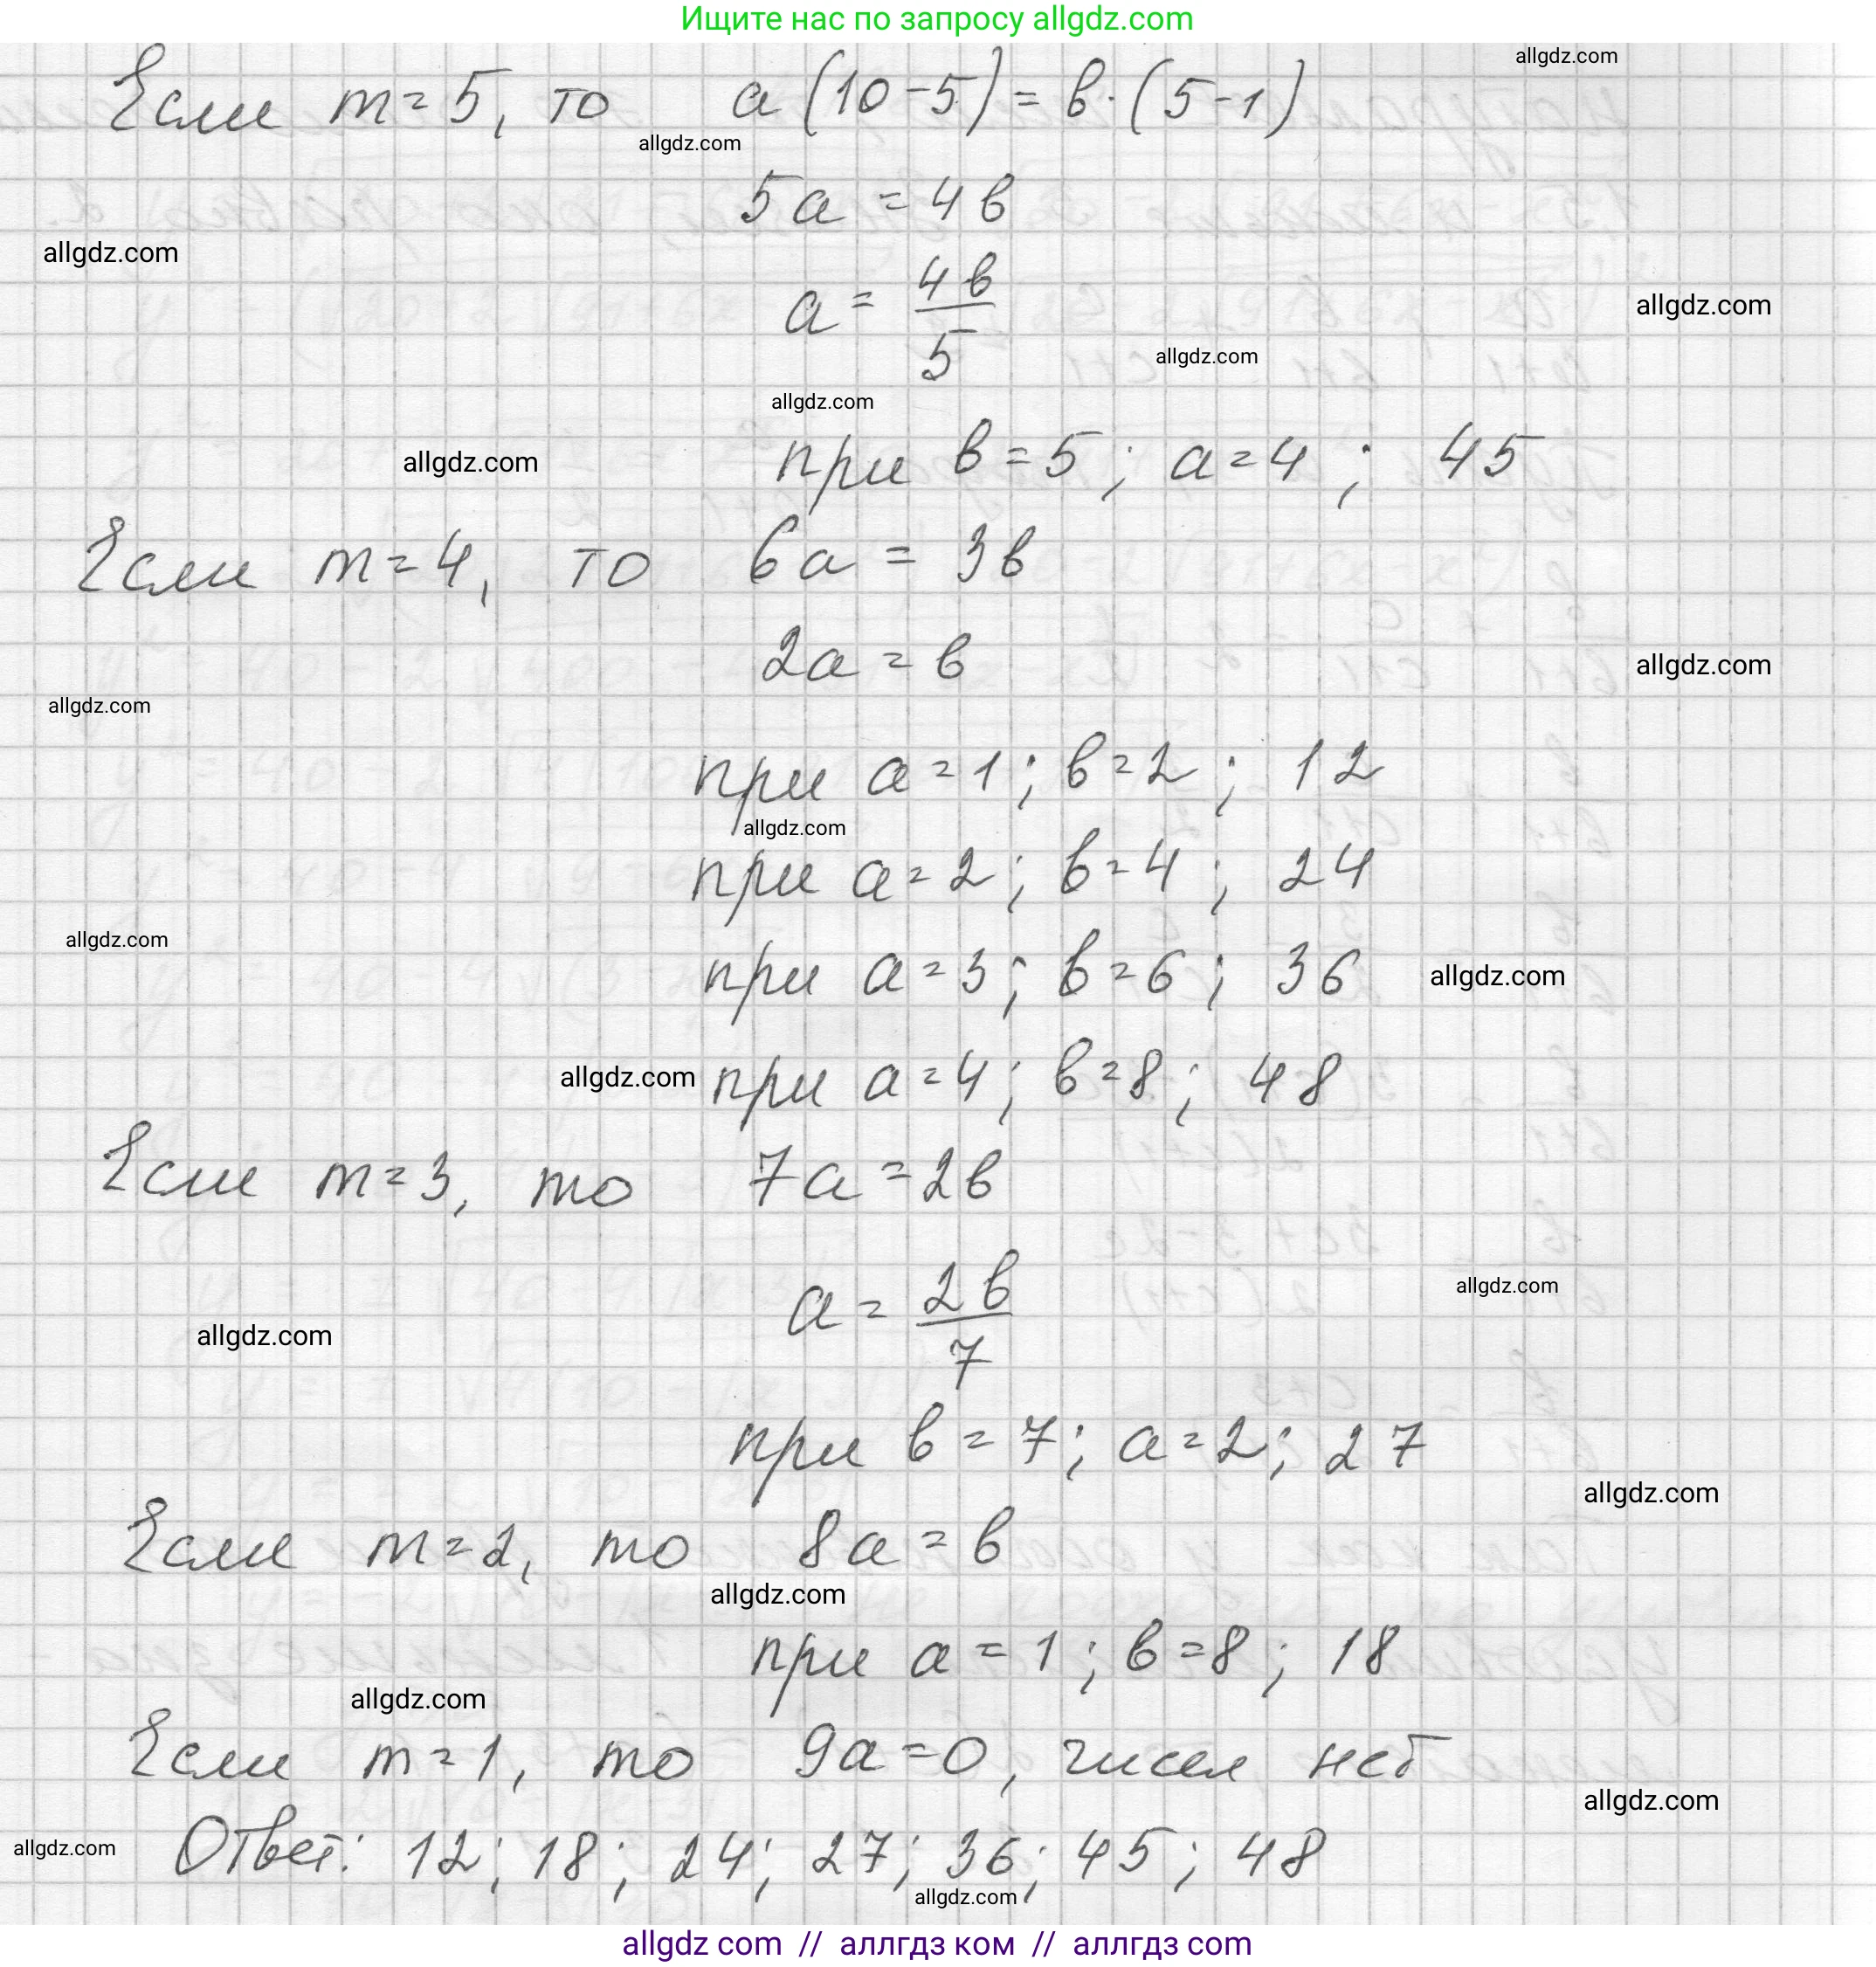 Ищите нас по запросу allgdz.com
allgdz.com
Если m=5, то a(10-5)=в·(5-1)
allgdz.com
5a=4в
allgdz.com
a=4в/5
allgdz.com
allgdz.com
allgdz.com
при в=5; a=4; 45
allgdz.com
Если m=4, то 6a=3в
2a=в
allgdz.com
allgdz.com
при a=1; в=2; 12
allgdz.com
при a=2; в=4; 24
allgdz.com
при a=3; в=6; 36
allgdz.com
allgdz.com
при a=4; в=8; 48
Если m=3, то 7a=2в
a=2в/7
allgdz.com
allgdz.com
при в=7; a=2; 27
allgdz.com
Если m=2, то 8a=в
allgdz.com
при a=1; в=8; 18
allgdz.com
Если m=1, то 9a=0, чисел нет
allgdz.com
allgdz.com
Ответ: 12; 18; 24; 27; 36; 45; 48
allgdz.com
allgdz com // аллгдз ком // аллгдз com